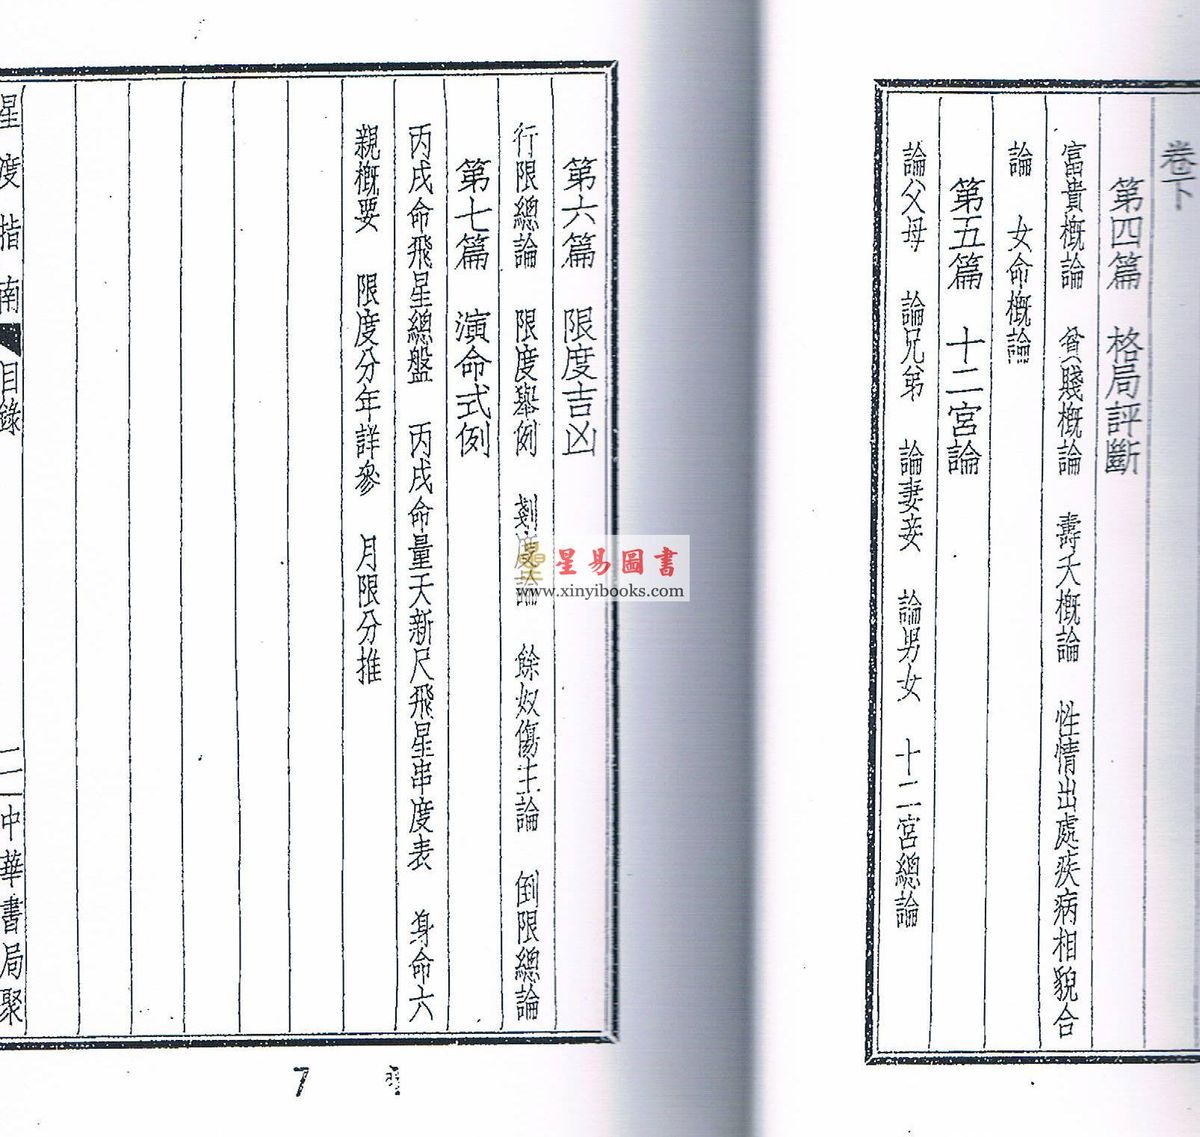 卷下
第四篇 格局評斷
富貴概論 貧賤概論 壽夭概論 性情出處疾病相貌合
論 女命概論
第五篇 十二宮論
論父母 論兄弟 論妻妾 論男女 十二宮總論
第六篇 限度吉凶
行限總論 限度舉例 剗度論 餘奴傷主論 倒限總論
第七篇 演命式例
丙戌命飛星總盤 丙戌命量天新尺飛星串度表 身命六
親概要 限度分年詳參 月限分推
星度指南 目錄 二 中華書局聚
7
星易圖書
www.xinyibooks.com